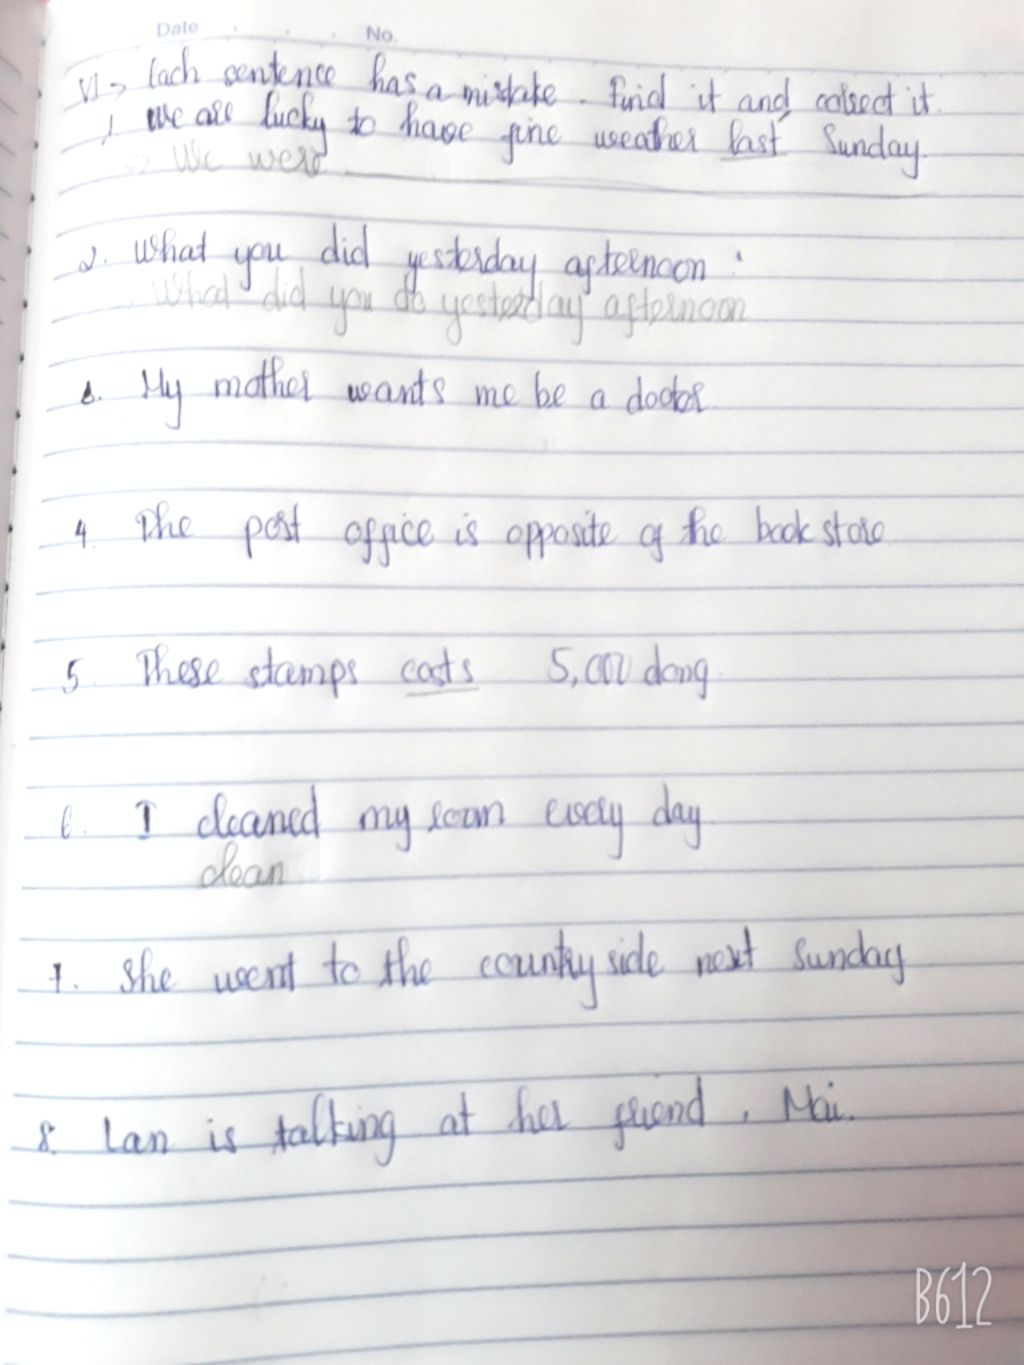 Date No.
VI > Each sentence has a mistake. Find it and correct it.
1 We are lucky to have fine weather last Sunday.
> We were
2. What you did yesterday afternoon
What did you do yesterday afternoon
3. My mother wants me be a doctor.
4. The post office is opposite of the book store
5 These stamps costs 5,000 dong.
6. I cleaned my room every day.
clean
7. She went to the countryside next Sunday
8. Lan is talking at her friend, Mai.
B612